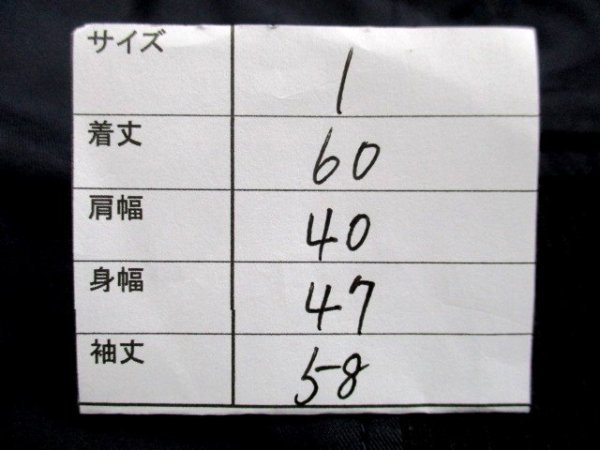 サイズ 1
着丈 60
肩幅 40
身幅 47
袖丈 58